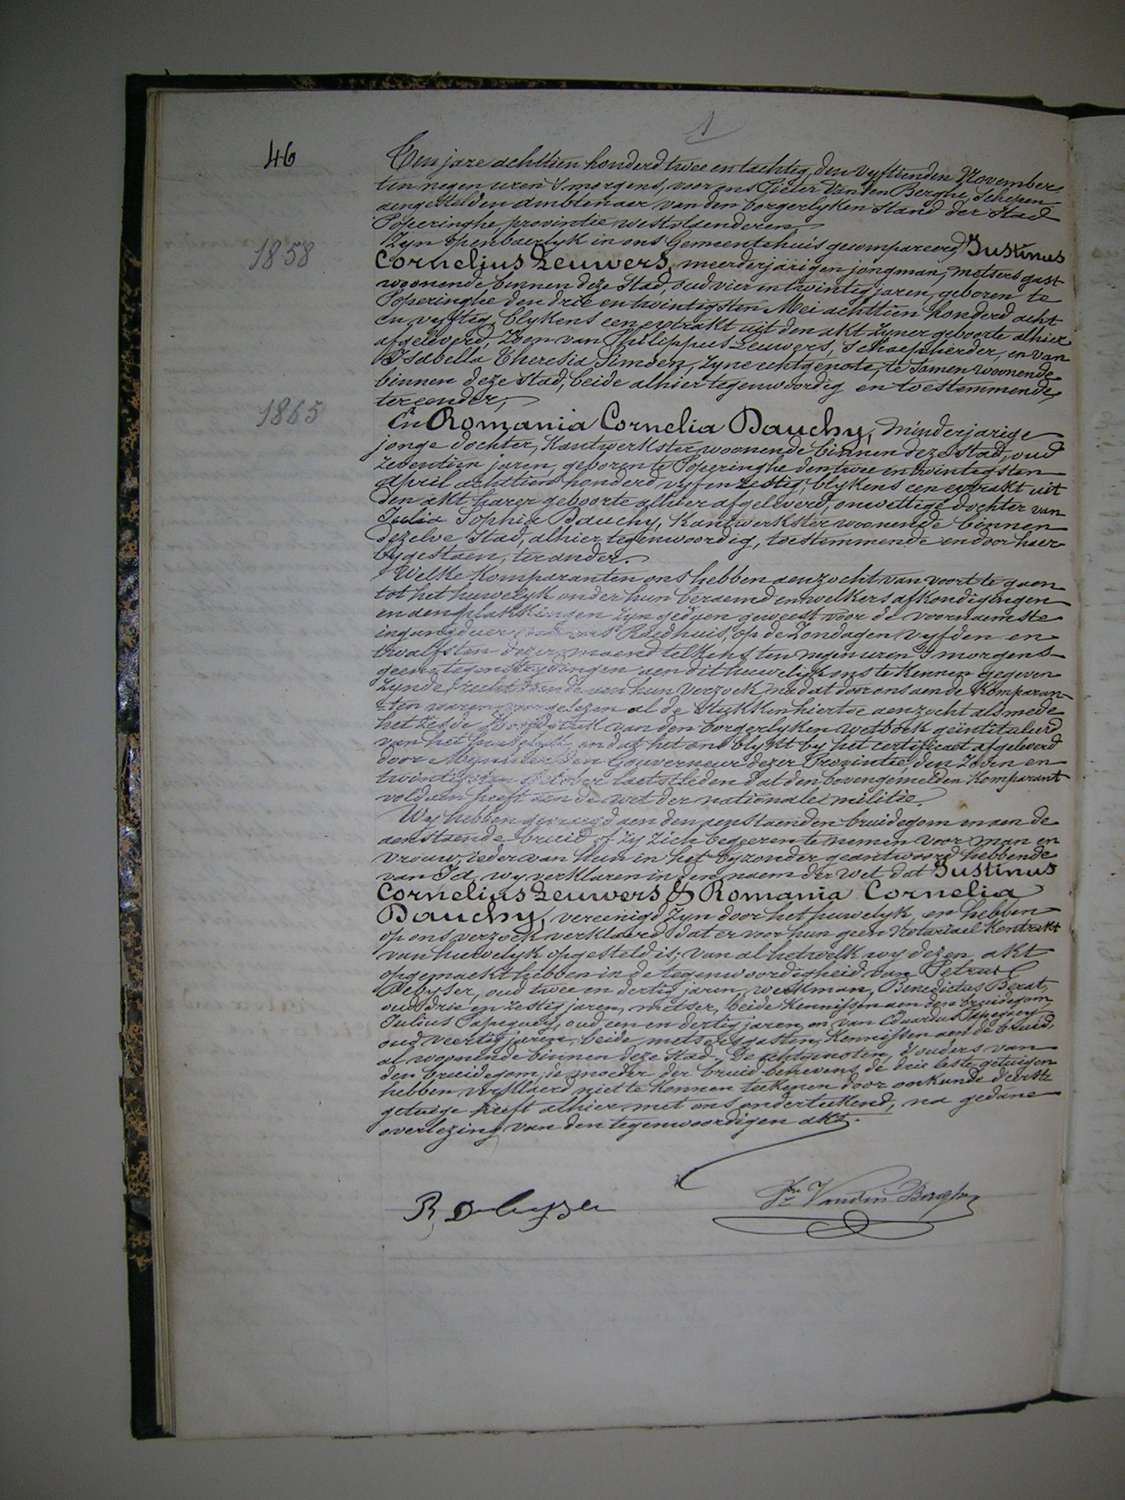 46
Ten jare achttien honderd twee en tachtig, den vyftienden November
ten negen uren 's morgens, voor ons Pieter Van den Berghe, Schepen
aengestelden Ambtenaer van den borgerlyken Stand der Stad
Poperinghe, provintie westvlaenderen,
Zyn openbaerlyk in ons Gemeentehuis gecompareerd, Justinus
1858
Cornelius Leuwers, meerderjarigen jongman, metsers gast
woonende binnen deze Stad, oud vier en twintig jaren, geboren te
Poperinghe den drie en twintigsten Mei achttien honderd acht
en vyftig, blykens een extrakt uit den akt zyner geboorte alhier
afgeleverd, Zoon van Philippus Leuwers, Schaepsherder, en van
Isabella Theresia, zyne echtgenote, te samen woonende
binnen deze Stad, beide alhier tegenwoordig en toestemmende,
ter eender,
1865
En Romania Cornelia Dauchy, minderjarige
jonge dochter, Kantwerkster, woonende binnen deze Stad, oud
zeventien jaren, geboren te Poperinghe den twee en twintigsten
April achttien honderd vyf en zestig, blykens een extrakt uit
den akt harer geboorte alhier afgeleverd, onwettige dochter van
Julia Sophia Dauchy, Kantwerkster woonende binnen
dezelve Stad, alhier tegenwoordig, toestemmende en door haer
bygestaen, ter ander.
Welke Komparanten ons hebben aenzocht van voort te gaen
tot het huwelyk onder hun beraemd en welkers afkondigingen
en aenplakkingen zyn gedaen geweest voor de voornaemste
ingangdeur van ons Raedhuis, op de Zondagen vyfden en
twaelfsten dezer maend telkens ten negen uren 's morgens
geene tegenstrydingen aen dit huwelyk ons te kennen gegeven
zynde, recht doende aen hun verzoek, nadat door ons aen de Komparan-
ten waren voorgelezen al de Stukken hiertoe aenzocht alsmede
het zesde hoofdstuk van den borgerlyken wetboek geïntituleerd
van het huwelyk, en dat het ons blykt by het certificaet afgeleverd
door Mynheer den Gouverneur dezer Provintie, den zeven en
twintigsten October laetstleden dat den bovengemelden Komparant
voldaen heeft aen de wet der nationale militie.
Wy hebben gevraegd aen den aenstaenden bruidegom en aen de
aenstaende bruid of zy zich begeeren te nemen voor man en
vrouw, ieder van hun in het byzonder geantwoord hebbende
van Ja, wy verklaren in den naem der wet dat Justinus
Cornelius Leuwers & Romania Cornelia
Dauchy, vereenigd zyn door het huwelyk, en hebben
op ons verzoek verklaerd dat er voor hun geen Notariael Kontrakt
van huwelyk opgesteld is; van al hetwelk wy dezen akt
opgemaekt hebben in de tegenwoordigheid van Petrus
Debyser, oud twee en dertig jaren, werkman, Benedictus
oud drie en zestig jaren, metser, beide Kennissen aen den bruidegom
Julius, oud een en dertig jaren, en van Eduardus
oud veertig jaren, beide metsersgasten, Kennissen aen de bruid,
al woonende binnen deze Stad. De echtgenoten, d'ouders van
den bruidegom, de moeder der bruid benevens de drie leste getuigen
hebben verklaerd niet te konnen teekenen door onkunde d'eerste
getuige heeft alhier met ons onderteekend, na gedane
overlezing van den tegenwoordigen akt.
P Debyser
Pr Vanden Berghe